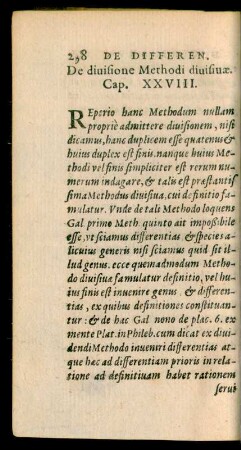 298 DE DIFFEREN.
De diuisione Methodi diuisiuæ.
Cap. XXVIII.
REperio hanc Methodum nullam
propriè admittere diuisionem, nisi
dicamus, hanc duplicem esse quatenus &
huius duplex est finis. nanque huius Me-
thodi vel finis simpliciter est rerum nu-
merum indagare, & talis est præstantis-
sima Methodus diuisiua, cui definitio fa-
mulatur. Vnde de tali Methodo loquens
Gal primo Meth quinto ait impoßibile
esse, vt sciamus differentias & species a-
licuius generis nisi sciamus quid sit il-
lud genus. ecce quemadmodum Metho-
do diuisiuæ famulatur definitio, vel hu-
ius finis est inuenire genus. & differen-
tias, ex quibus definitiones constituan-
tur: & de hac Gal nono de plac. 6. ex
mente Plat. in Phileb. cum dicat ex diui-
dendi Methodo inueniri differentias at-
que hæc ad differentiam prioris in rela-
tione ad definitiuam habet rationem
serui